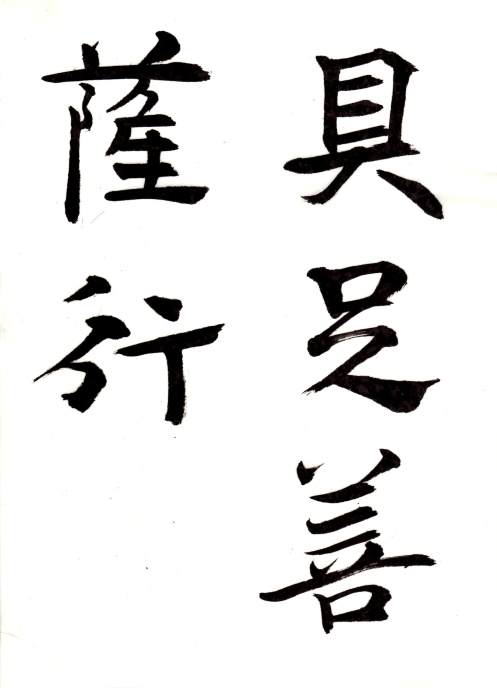 具足菩
薩行